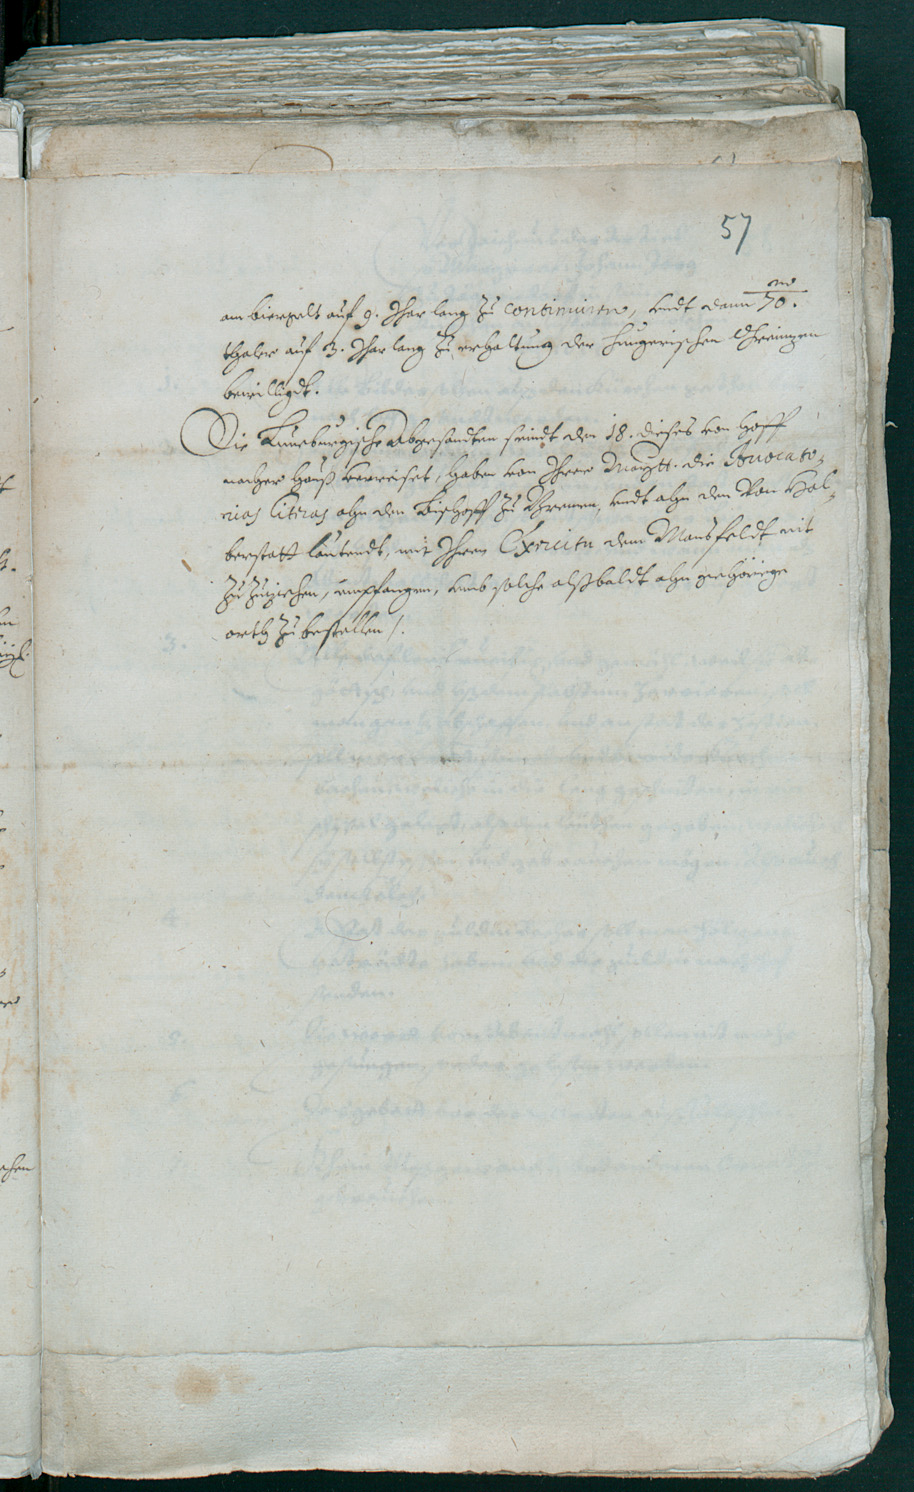 57
am biergelt auf 9. Jhar lang zu continuirn, undt dann 70.
thaler auf 3. Jhar lang zu erhaltung der hungerischen Gränitzen
bewilligdt.
Die Luneburgische Abgesandten seindt den 18. dieses von hoff
nacher hauß verreiset, haben von Ihrer Mayestt. die Avocato-
rias literas ahn den Bischoff zu Bremen, undt ahn den von Hal-
berstatt lautendt, mit Ihren Exercitu dem Mansfeldt nit
zuzuziehen, empfangen, umb solche alßbaldt ahn gehörige
orth zu bestellen /.